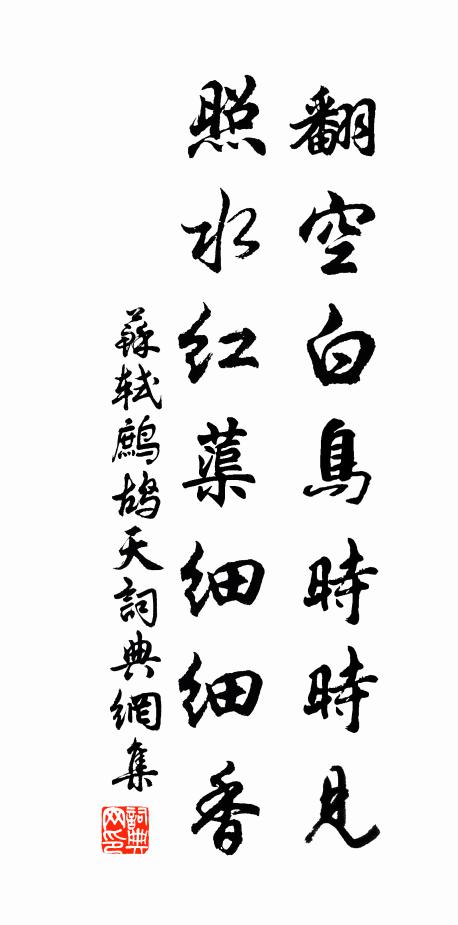 翻空白鳥時時見
照水紅蕖細細香
蘇軾鷓鴣天詞典網集
詞典网印